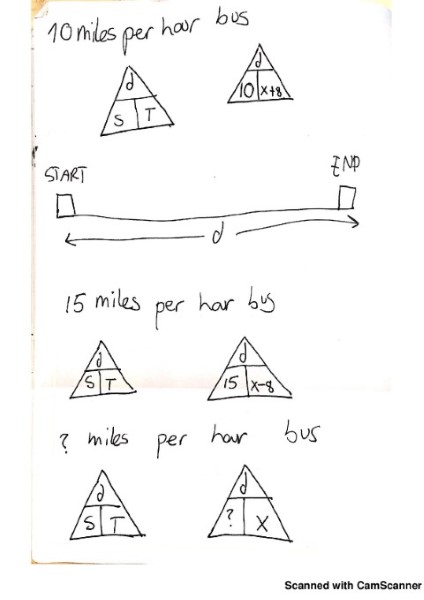 10 miles per hour bus
d
S T
d
10 x+8
START
END
d
15 miles per hour bus
d
S T
d
15 x-8
? miles per hour bus
d
S T
d
? X
Scanned with CamScanner